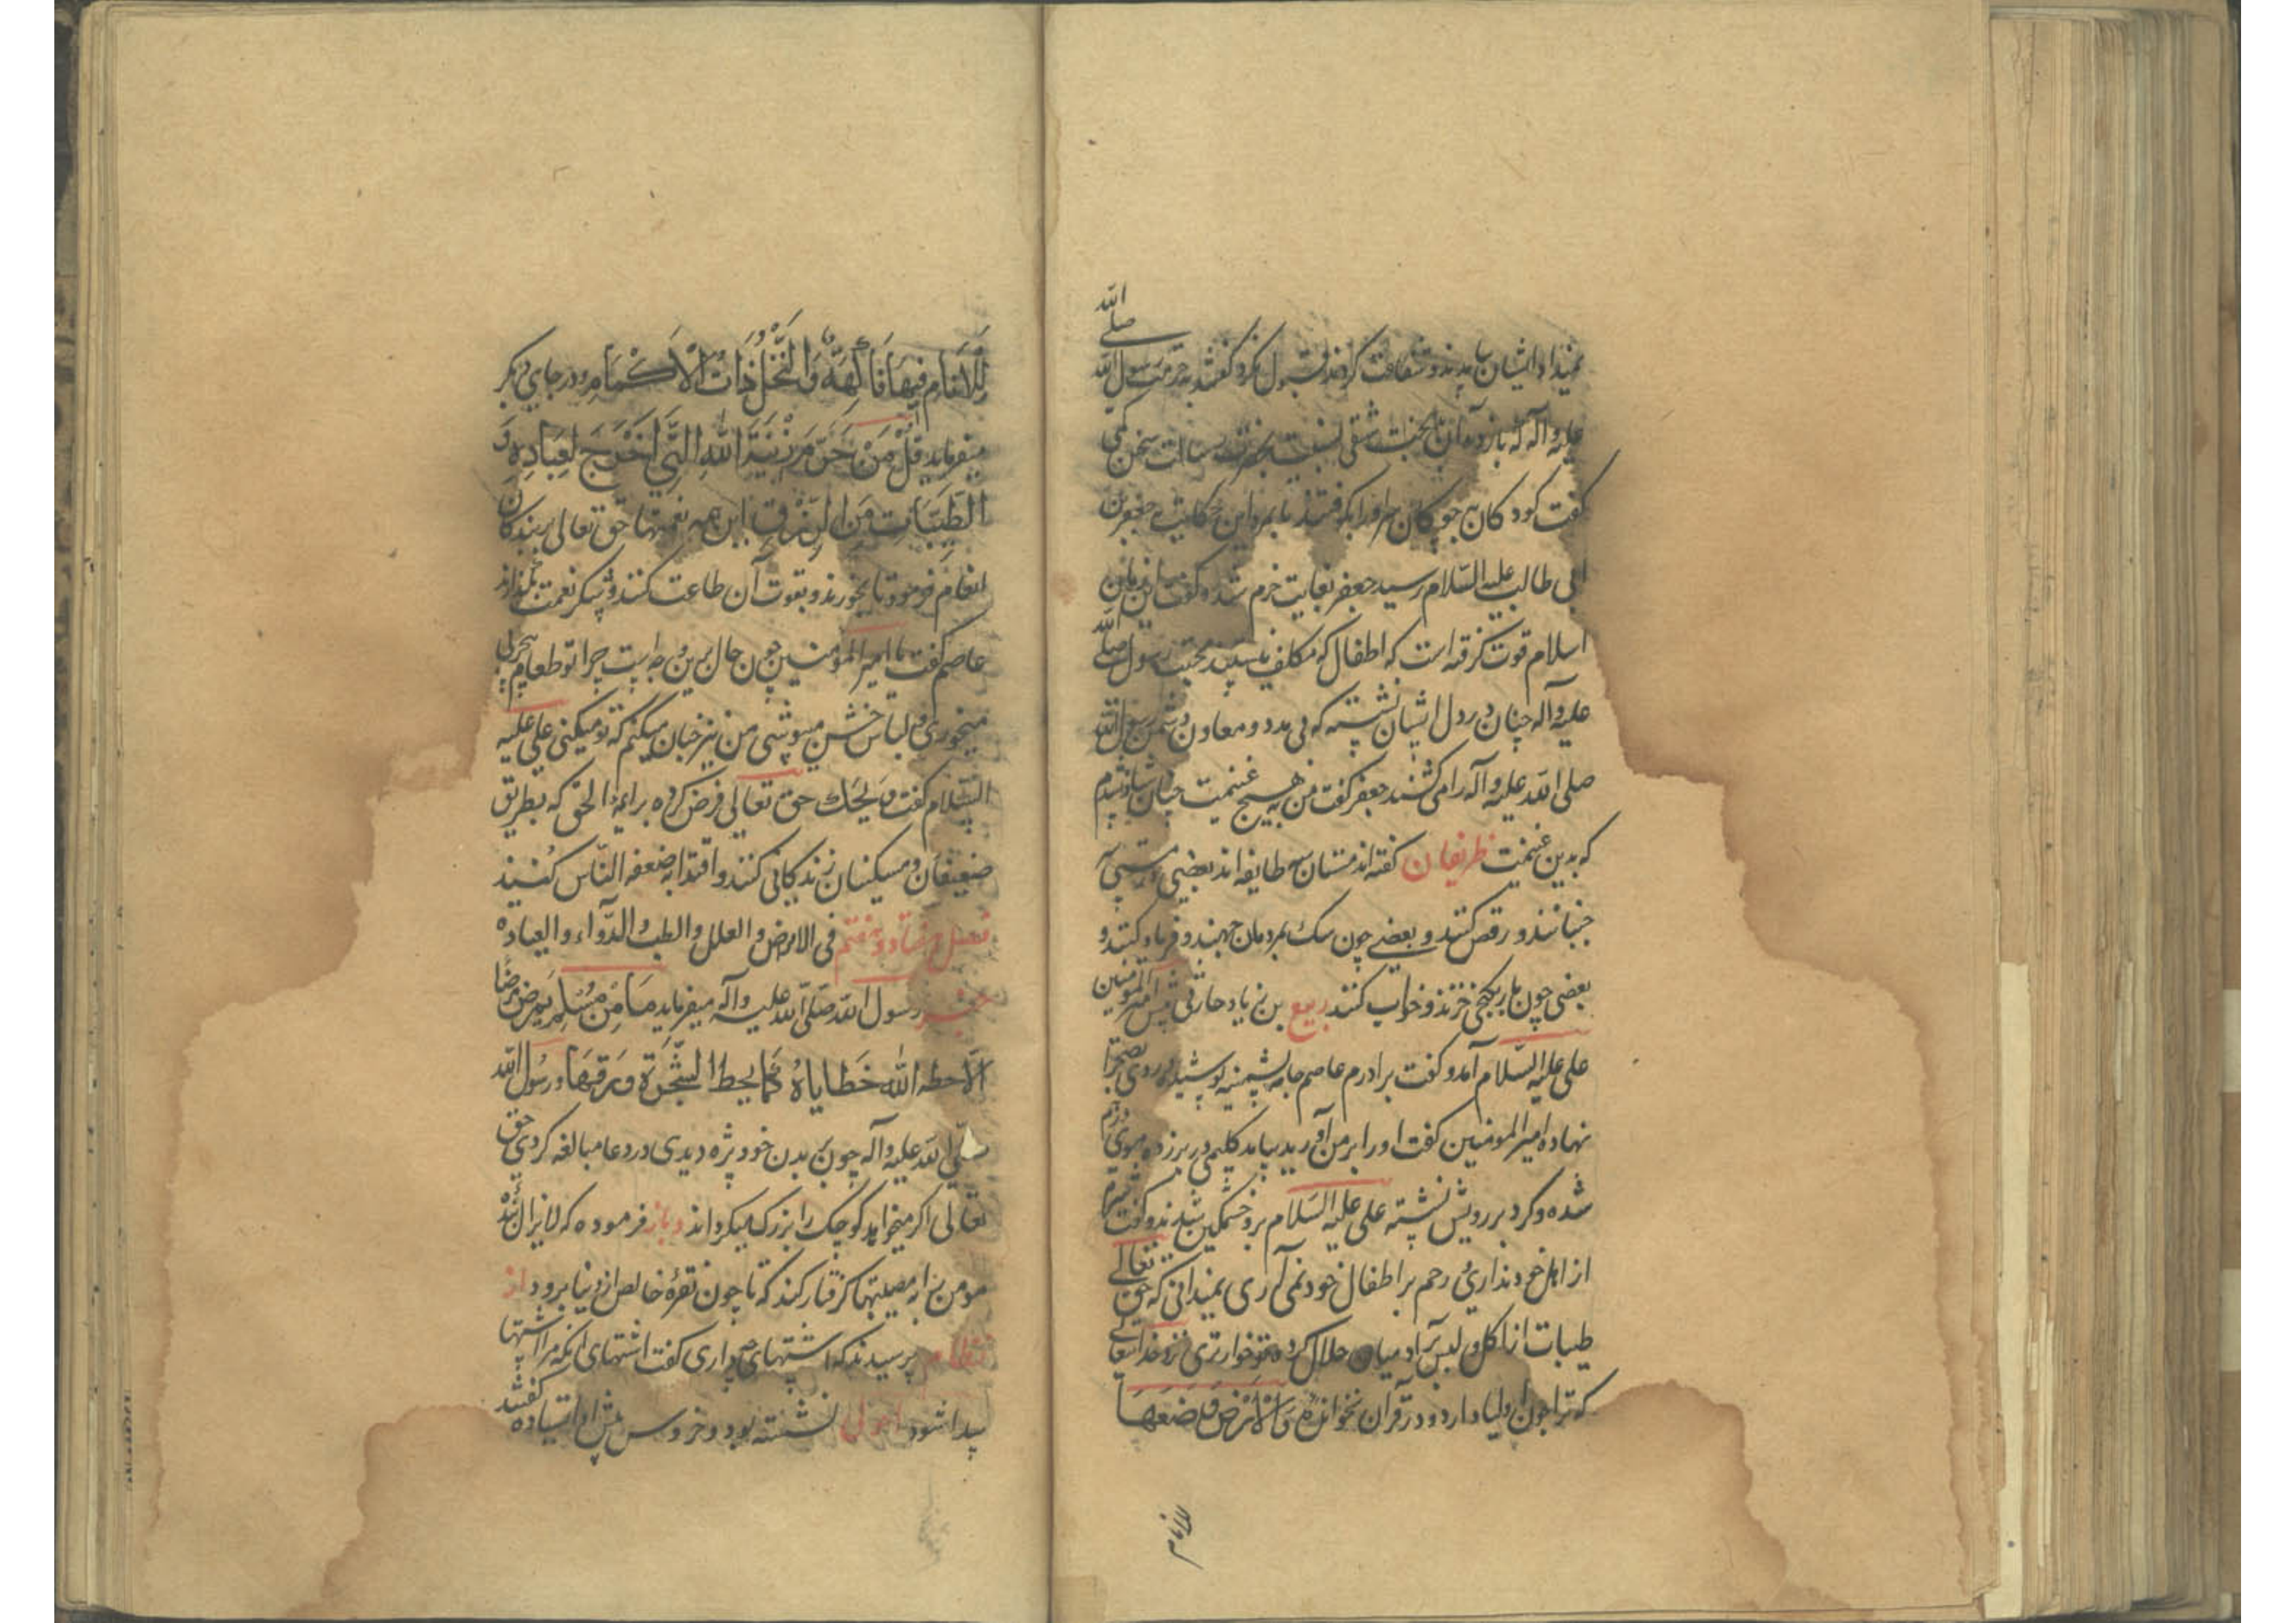 نمیداد ایشان بدیدند و شفاعت کردند قبول نکرد گفتند بحرمت رسول الله صلی الله
علیه وآله که باز ده آن بدبخت شقی نسبت بحضرت رسالت سخن کمی
گفت کودکان بچوگان او را بکوفتند تا بمرد این حکایت بجعفر بن
ابی طالب علیه السلام رسید جعفر بغایت خرم شد و گفت این زمان
اسلام قوت گرفته است که اطفال که مکلف نیستند محبت رسول صلی الله
علیه وآله چنان در دل ایشان نشسته که بی مدد و معاون دشمن رسول الله
صلی الله علیه وآله را می کشند جعفر گفت من به هیچ غنیمت چنان شاد نشدم
که بدین غنیمت ظریفان گفته اند مستان سه طایفه اند بعضی
جنبانند و رقص کنند و بعضی چون سگ بمردمان جهند و فریاد کنند و
بعضی چون مار بکنجی خزند و خواب کنند ربیع بن زیاد حارثی پیش امیر المومنین
علی علیه السلام آمد و گفت برادرم عاصم جامه پشمینه پوشیده و روی بصحرا
نهاده امیر المومنین گفت او را بر من آرید بیامد گلیمی در بر زده موی درهم
شده و گرد بر رویش نشسته علی علیه السلام برو خشمگین شد و گفت شرم
از اهل خود نداری و رحم بر اطفال خود نمی آری نمیدانی که حق تعالی
طیبات از اکل و لبس بر آدمیان حلال کرده تو خوارتری نزد خدایتعالی
که ترا چون اولیا دارد و در قرآن نخوانده وَالْاَرْضَ وَضَعَهَا
للانام
لِلْاَنَامِ فِیهَا فَاکِهَةٌ وَالنَّخْلُ ذَاتُ الْاَکْمَامِ و در جای دیگر
میفرماید قُلْ مَنْ حَرَّمَ زِینَةَ اللهِ الَّتِی اَخْرَجَ لِعِبَادِهِ وَ
الطَّیِّبَاتِ مِنَ الرِّزْقِ این همه نعمتها حق تعالی بر بندگان
انعام فرمود تا بخورند و بقوت آن طاعت کنند و شکر نعمت بگذارند
عاصم گفت یا امیر المومنین چون حال برین وجه است چرا تو طعام بی چربی
میخوری و لباس خشن میپوشی من نیز چنان میکنم که تو میکنی علی علیه
السلام گفت ویحک حق تعالی فرض کرده بر ائمة الحق که بطریق
ضعیفان و مسکینان زندگانی کنند و اقتدا به ضعفه الناس کنند
فصل هفتاد و هفتم فی الامراض والعلل والطب والدواء والعیاده
خبر رسول الله صلی الله علیه وآله میفرماید مَا مِنْ مُسْلِمٍ یَمرض مرضًا
الّا حطه الله خَطَایاهُ کَمَا یحط الشَّجَرَة وَرَقَهَا و رسول الله
صلی الله علیه وآله چون بر بدن خود پژه دیدی در دعا مبالغه کردی حق
تعالی اگر میخواهد کوچک را بزرگ میگرداند و باز فرموده که لا یزال بنده
مومن را به مصیبتها گرفتار کند که تا چون نقره خالص از دنیا برود از
نظام پرسیدند که اشتهای چه داری گفت اشتهای آنکه مرا اشتها
پیدا شود اعرابی نشسته بود و خروس پیش او ایستاده گفتند